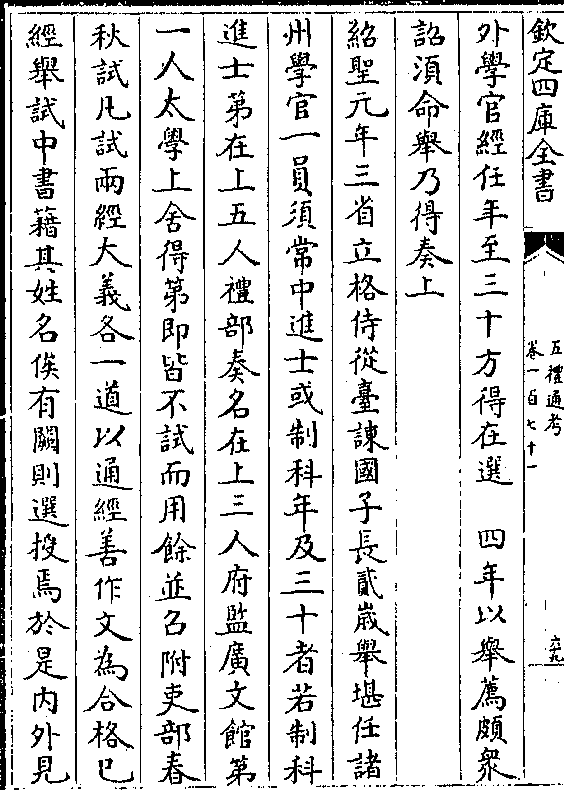 欽定四庫全書
五禮通考
卷一百七十一
六九
外學官經任年至三十方得在選　四年以舉薦頗衆
詔須命舉乃得奏上
紹聖元年三省立格侍從臺諫國子長貳嵗舉堪任諸
州學官一員須常中進士或制科年及三十者若制科
進士第在上五人禮部奏名在上三人府監廣文館第
一人太學上舍得第即皆不試而用餘並召附吏部春
秋試凡試兩經大義各一道以通經善作文為合格已
經舉試中書籍其姓名俟有闕則選授焉於是内外見